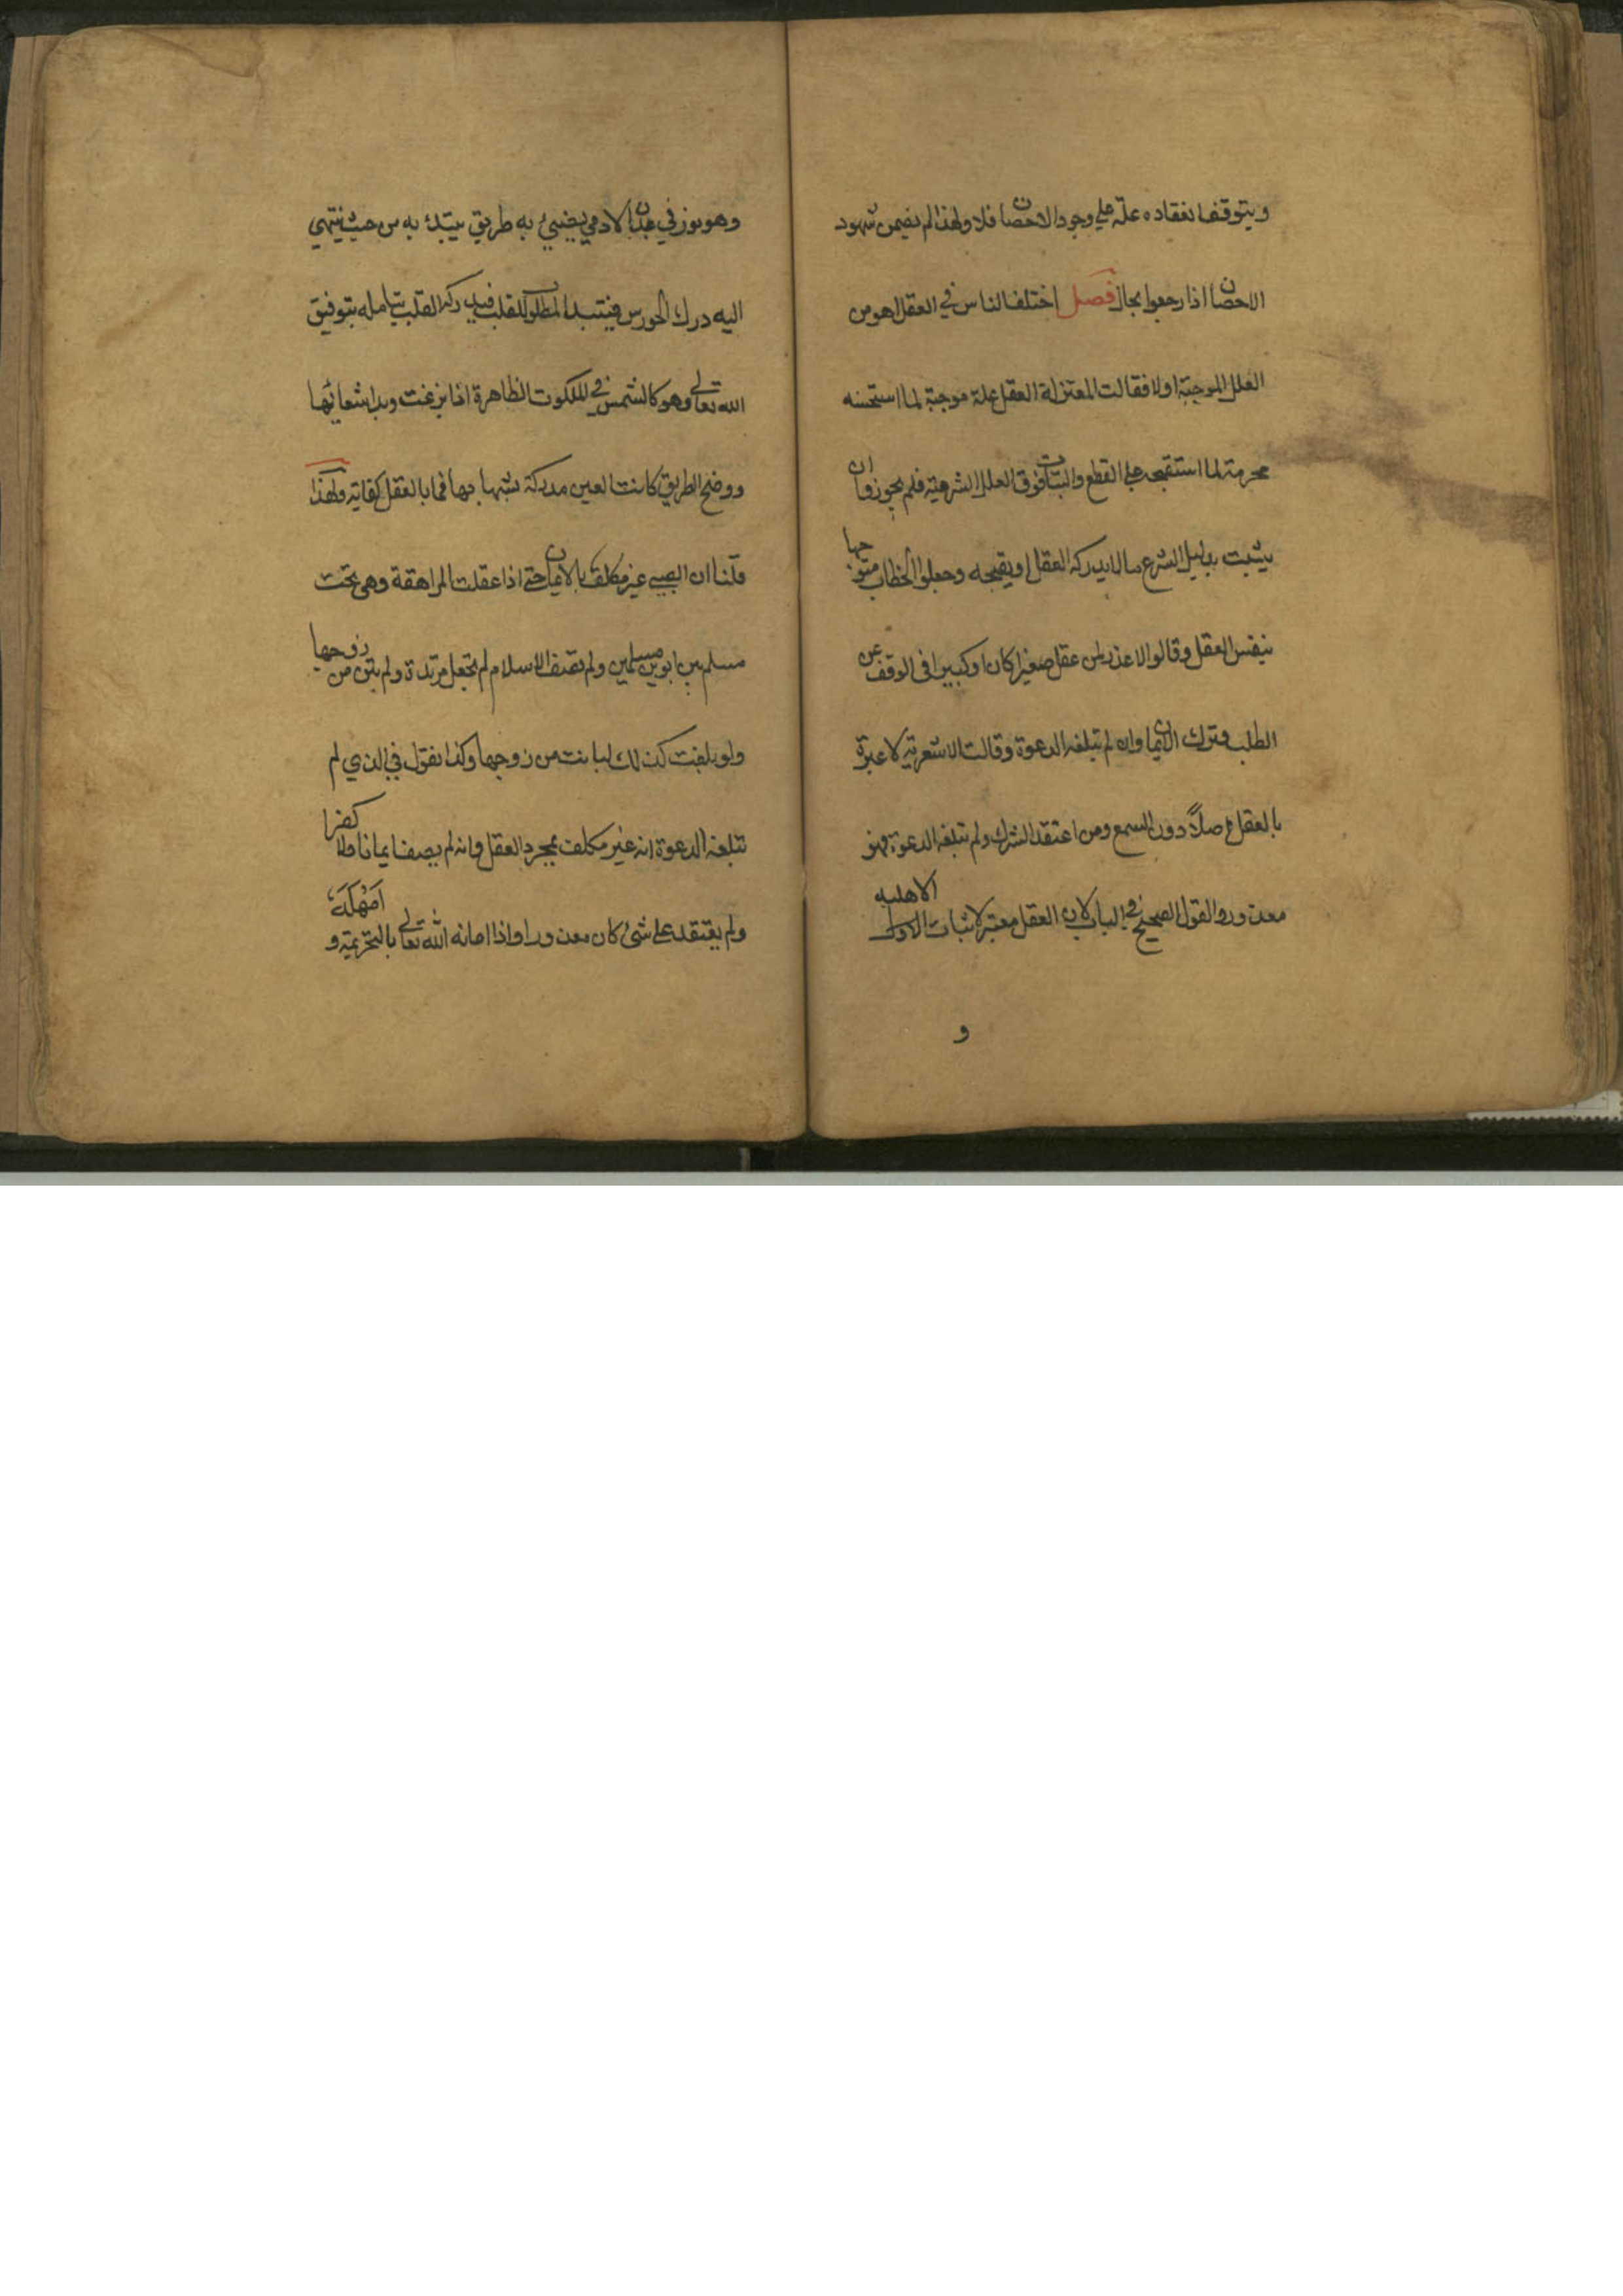 ويتوقف انعقاده علة علي وجود الاحصان فلا ولهذا لم يضمن شهود
الاحصان اذا رجعوا بحال فصل اختلف الناس في العقل اهو من
العلل الموجبة اولا فقالت المعتزلة العقل علة موجبة لما استحسنه
محرمة لما استقبحه علي القطع والبتات فوق العلل الشرعية فلم يجوزوا ان
يثبت بدليل الشرع مالايدركه العقل او يقبحه وجعلوا الخطاب متوجها
بنفس العقل وقالوا لاعذر لمن عقل صغيرا كان او كبيرا في الوقف عن
الطلب وترك الايمان وان لم تبلغه الدعوة وقالت الاشعرية لاعبرة
بالعقل اصلاً دون السمع ومن اعتقد الشرك ولم تبلغه الدعوة فهو
معذور والقول الصحيح في الباب لان العقل معتبر لاثبات الاهلية
و
وهو نور في بدن الادمي يضيئ به طريق يبتدئ به من حيث ينتهي
اليه درك الحورس فيبتدا المطلوب للقلب فيدركه القلب بتامله بتوفيق
الله تعالي وهو كالشمس في الملكوت الظاهرة اذا بزغت وبدا شعائها
ووضح الطريق كانت العين مدركة بشبها بها فما بالعقل كفاية ولهذا
قلنا ان الصبي غير مكلف بالايمان حتي اذا عقلت المراهقة وهي تحت
مسلم بين ابوين مسلمين ولم تصف الاسلام لم تجعل مرتدة ولم تبن من زوجها
ولو بلغت كذلك لبانت من زوجها وكذا نقول في الذي لم
تبلغه الدعوة انه غير مكلف بمجرد العقل وانه لم يصف ايمانا ولا كفرا
ولم يعتقد علي شئ كان معذورا واذا اعانه الله تعالي بالتجربة و امهله